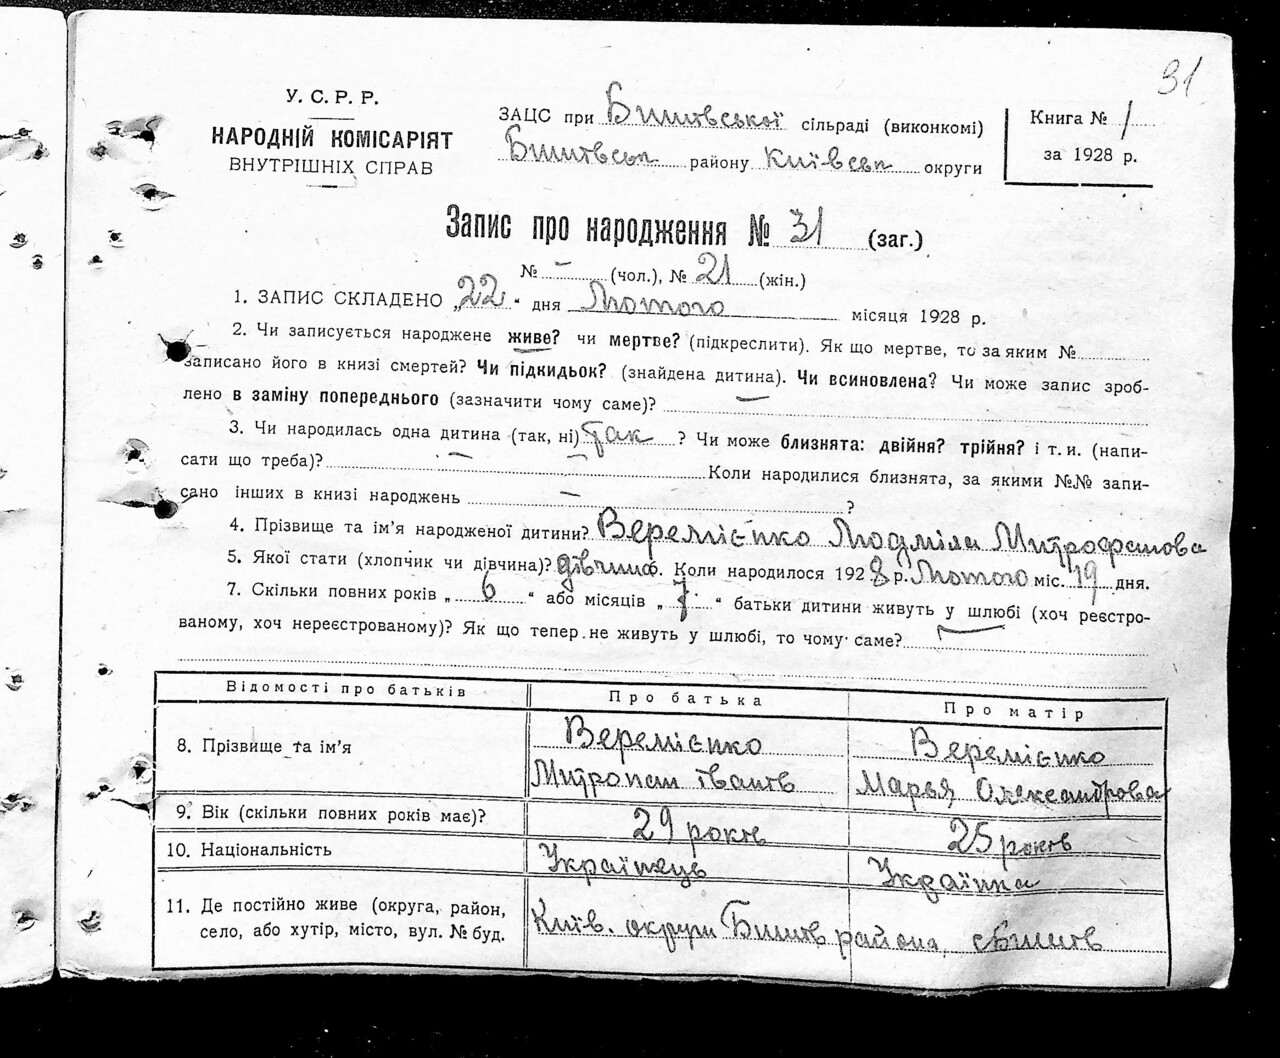 31
У. С. Р. Р.
НАРОДНІЙ КОМІСАРІЯТ
ВНУТРІШНІХ СПРАВ
ЗАЦС при Бишівської сільраді (виконкомі)
Бишівськ району Київськ округи
Книга № 1
за 1928 р.
Запис про народження № 31 (заг.)
№ – (чол.), № 21 (жін.)
1. ЗАПИС СКЛАДЕНО „22“ дня Лютого місяця 1928 р.
2. Чи записується народжене живе? чи мертве? (підкреслити). Як що мертве, то за яким №
записано його в книзі смертей? Чи підкидьок? (знайдена дитина). Чи всиновлена? Чи може запис зроб-
лено в заміну попереднього (зазначити чому саме)? –
3. Чи народилась одна дитина (так, ні) так ? Чи може близнята: двійня? трійня? і т. и. (напи-
сати що треба)? – Коли народилися близнята, за якими №№ запи-
сано інших в книзі народжень – ?
4. Прізвище та ім'я народженої дитини? Веремієнко Людміла Митрофанова
5. Якої стати (хлопчик чи дівчина)? дівчина. Коли народилося 1928 р. Лютого міс. 19 дня.
7. Скільки повних років „ 6 “ або місяців „ 7 “ батьки дитини живуть у шлюбі (хоч реєстро-
ваному, хоч нереєстрованому)? Як що тепер не живуть у шлюбі, то чому саме?
Відомості про батьків Про батька Про матір
8. Прізвище та ім'я Веремієнко Веремієнко
Митропан Іванів Марья Олександрова
9. Вік (скільки повних років має)? 29 років 25 років
10. Національність Українець Українка
11. Де постійно живе (округа, район,
село, або хутір, місто, вул. № буд. Київ. округи Бишів района, с Бишів